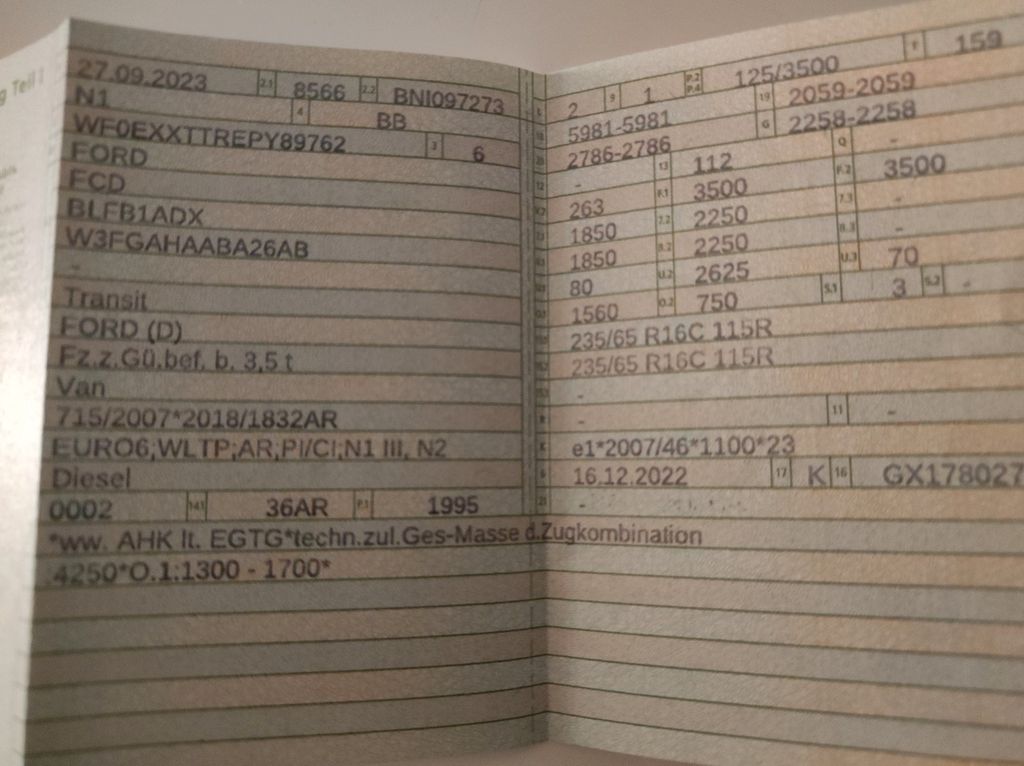 g Teil I
27.09.2023 2.1 8566 2.2 BNI097273
N1 4 BB
WF0EXXTTREPY89762 3 6
FORD
FCD
BLFB1ADX
W3FGAHAABA26AB
-
Transit
FORD (D)
Fz.z.Gü.bef. b. 3,5 t
Van
715/2007*2018/1832AR
EURO6;WLTP;AR;PI/CI;N1 III, N2
Diesel
0002 14.1 36AR P.1 1995
*ww. AHK lt. EGTG*techn.zul.Ges-Masse d.Zugkombination
4250*O.1:1300 - 1700*
L 2 9 1 P.2 P.4 125/3500 T 159
18 5981-5981 19 2059-2059
20 2786-2786 G 2258-2258
12 - 13 112 Q -
V.7 263 F.1 3500 F.2 3500
1850 7.2 2250 7.3 -
1850 8.2 2250 8.3 -
U.1 80 U.2 2625 U.3 70
O.1 1560 O.2 750 S.1 3 S.2 -
235/65 R16C 115R
235/65 R16C 115R
-
R - 11 -
K e1*2007/46*1100*23
6 16.12.2022 17 K 16 GX178027
21 -